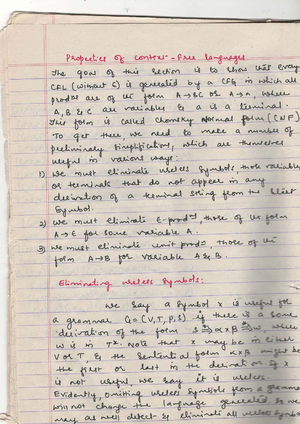 Properties of context-Free languages
The goal of this section is to show that every
CFL (without ε) is generated by a CFG in which all
prodns are of the form A→BC or A→a, where
A, B & C are variables & a is a terminal.
This form is called Chomsky Normal form (CNF)
To get there, we need to make a number of
preliminary simplifications, which are themselves
useful in various ways:
1) We must eliminate useless symbols, those variables
or terminals that do not appear in any
derivation of a terminal string from the start
symbol.
2) We must eliminate ε-prodns those of the form
A→ε for some variable A.
3) We must eliminate unit prodns those of the
form A→B for variable A & B.
Eliminating useless Symbols:
We say a symbol x is useful for
a grammar G=(V,T,P,S) if there is a some
derivation of the form S⇒αxβ⇒w, where
w is in T*. Note that x may be in either
V or T, & the sentential form αxβ might be
the first or last in the derivation. If x
is not useful, we say it is useless.
Evidently, omitting useless symbols from a grammar
will not change the language generated. So we
may as well detect & eliminate all useless symbols